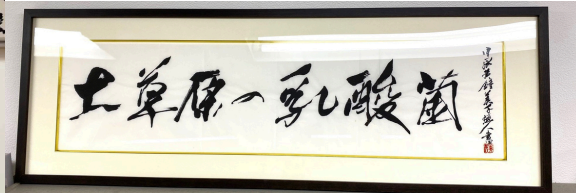 大草原の乳酸菌